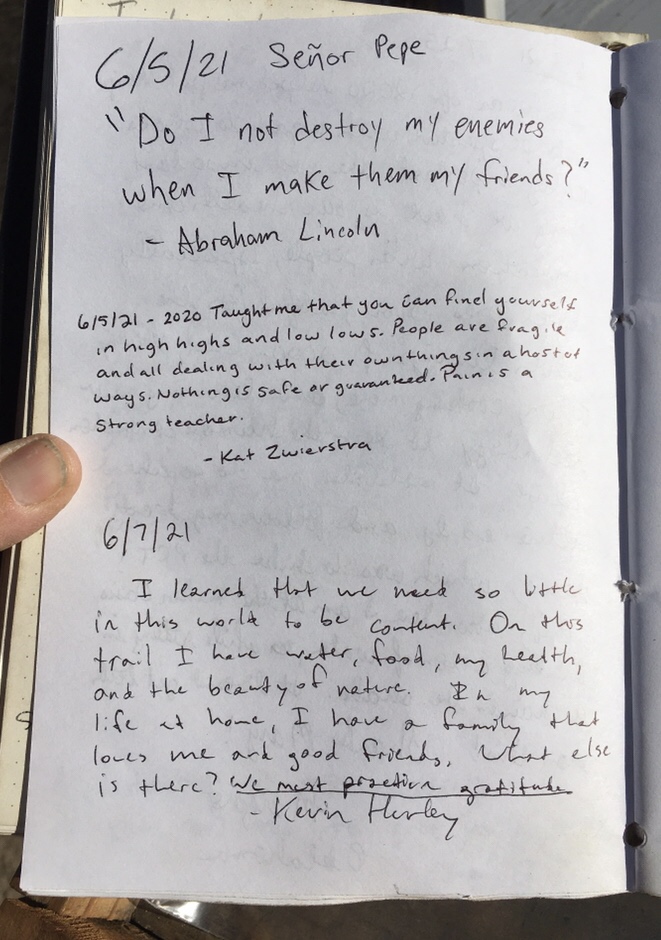 6/5/21 Señor Pepe
"Do I not destroy my enemies
when I make them my friends?"
- Abraham Lincoln
6/5/21 - 2020 Taught me that you can find yourself
in high highs and low lows. People are fragile
and all dealing with their own things in a host of
ways. Nothing is safe or guaranteed. Pain is a
Strong teacher.
- Kat Zwierstra
6/7/21
I learned that we need so little
in this world to be content. On this
trail I have water, food, my health,
and the beauty of nature. In my
life at home, I have a family that
loves me and good friends. What else
is there? We must practice gratitude
- Kevin Hurley